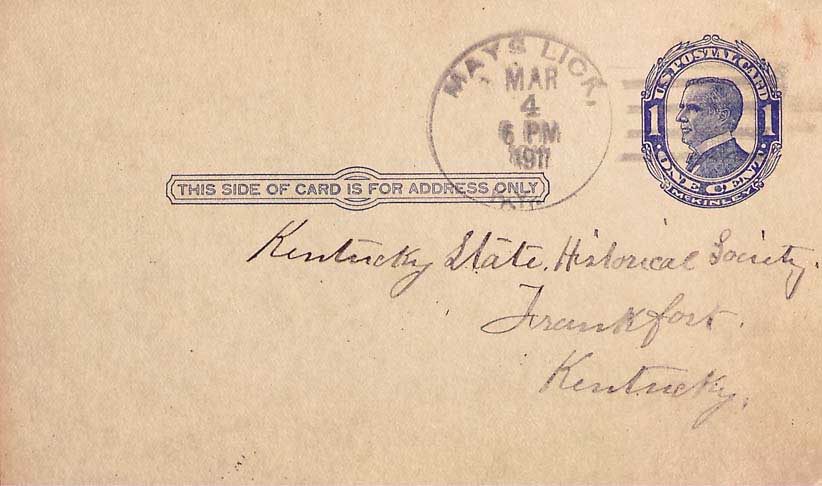 MAYS LICK,
MAR
4
6 PM
1911
KY.
U.S. POSTAL CARD
1 1
· ONE CENT ·
McKINLEY
THIS SIDE OF CARD IS FOR ADDRESS ONLY
Kentucky State Historical Society.
Frankfort.
Kentucky.